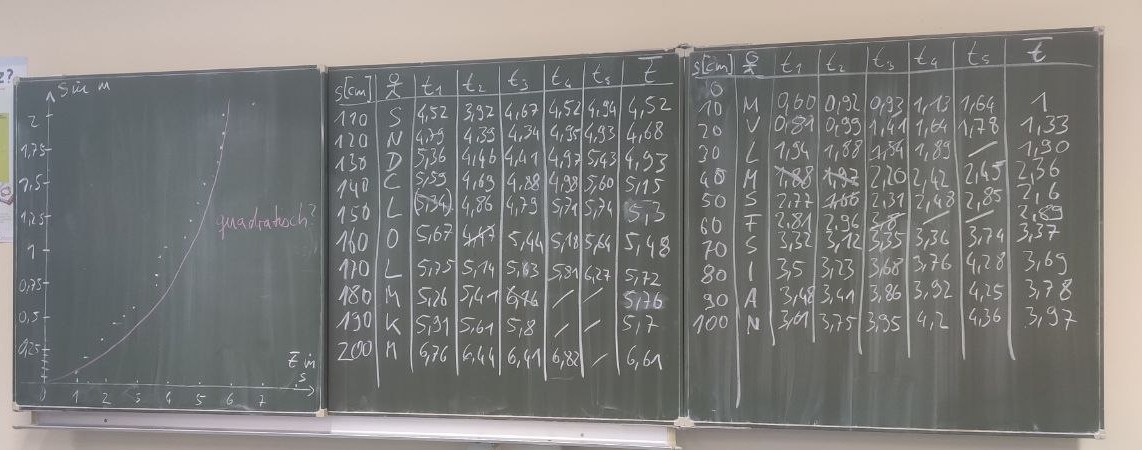 s in m
2
1,75
1,5
1
0,75
0,5
0,25
0 1 2 3 4 5 6 7
t̅ in s
quadratisch?
s[cm] t₁ t₂ t₃ t₄ t₅ t̅
110 S 4,52 3,92 4,67 4,52 4,94 4,52
120 N 4,79 4,39 4,34 4,95 4,93 4,68
130 D 5,36 4,46 4,41 4,97 5,43 4,93
140 C 5,59 4,69 4,88 4,98 5,60 5,15
150 L (5,34) 4,86 4,79 5,71 5,74 5,3
160 O 5,67 4,47 5,44 5,18 5,64 5,48
170 L 5,75 5,14 5,63 5,81 6,27 5,72
180 M 5,26 5,41 6,16 / / 5,76
190 K 5,91 5,61 5,8 / / 5,7
200 M 6,76 6,44 6,41 6,82 / 6,61
s[cm] t₁ t₂ t₃ t₄ t₅ t̅
10 M 0,60 0,92 0,93 1,13 1,64 1
20 V 0,81 0,99 1,41 1,64 1,78 1,33
30 L 1,94 1,88 1,84 1,89 / 1,90
40 M 1,88 1,97 2,20 2,42 2,45 2,36
50 S 2,77 1,66 2,31 2,48 2,85 2,6
60 F 2,81 2,96 3,8 / /
70 S 3,32 3,12 3,35 3,36 3,74 3,37
80 I 3,5 3,23 3,68 3,76 4,28 3,69
90 A 3,48 3,41 3,86 3,92 4,25 3,78
100 N 3,61 3,75 3,95 4,2 4,36 3,97